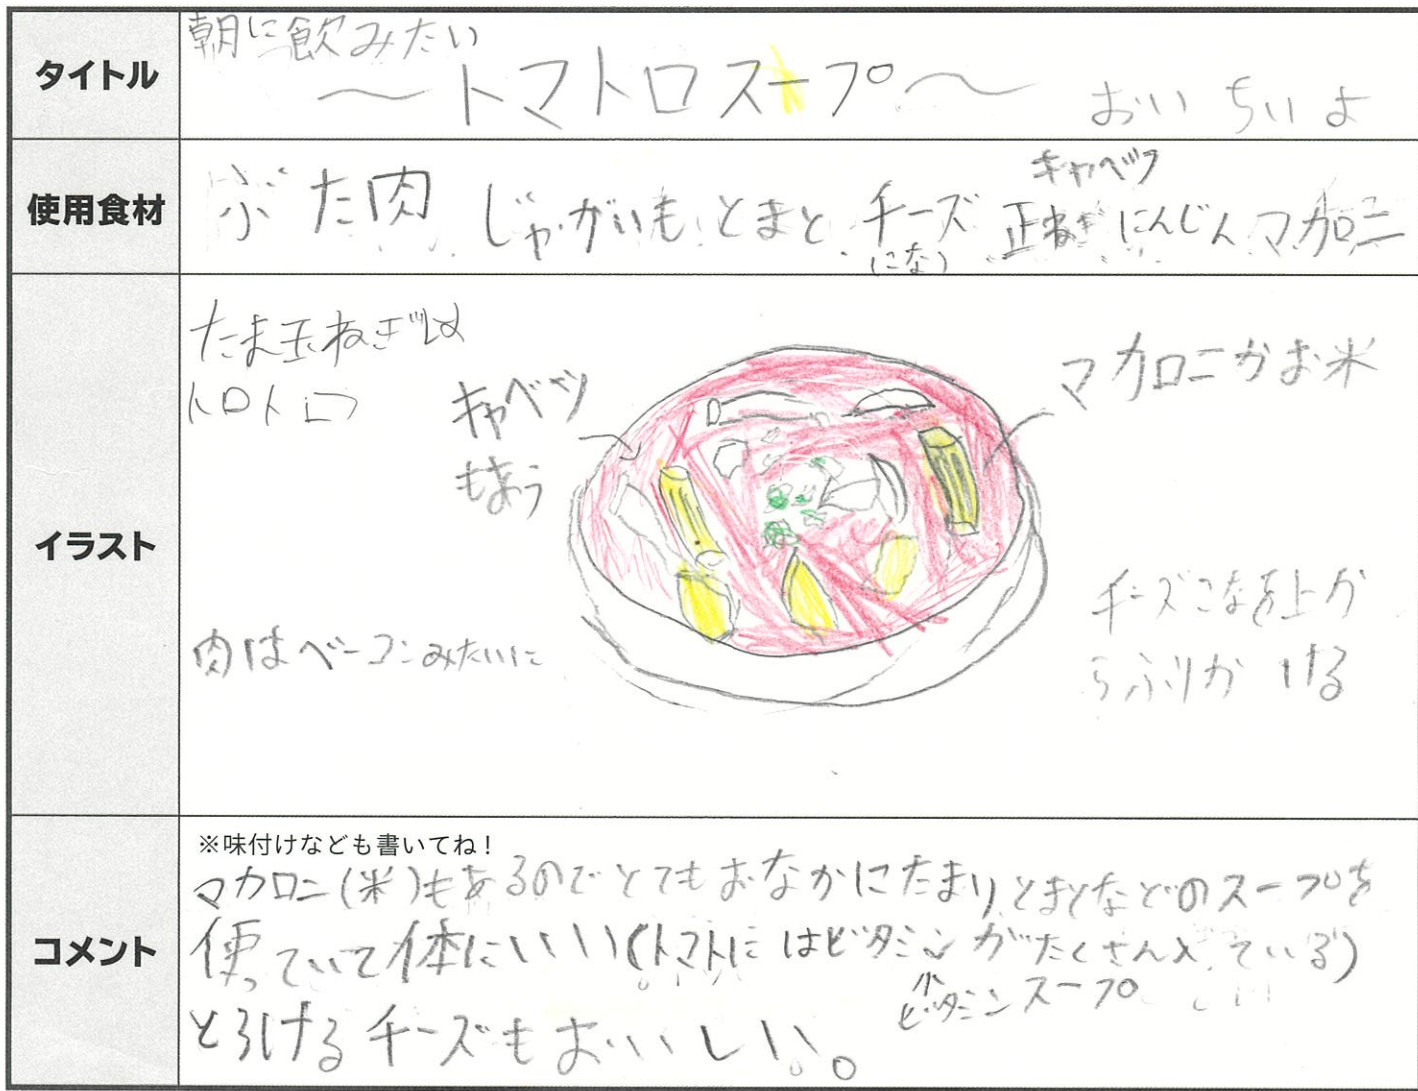 タイトル
朝に飲みたい
〜トマトロスープ〜
おいちいよ
使用食材
ぶた肉 じゃがいも とまと チーズ 玉ねぎ にんじん マカロニ
キャベツ
(こな)
イラスト
たま玉ねぎは
トロトロ
キャベツ
もあう
マカロニかお米
肉はベーコンみたいに
チーズこなを上か
らふりかける
コメント
※味付けなども書いてね!
マカロニ(米)もあるのでとてもおなかにたまりとまとなどのスープを
使っていて体にいい(トマトにはビタミンがたくさん入っている)
ビタミンスープ
とろけるチーズもおいしい。